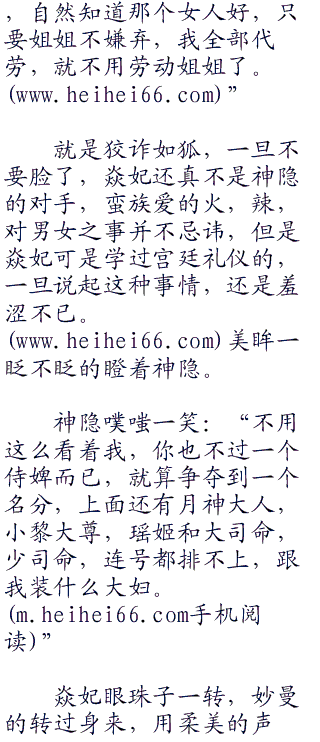 ，自然知道那个女人好，只
要姐姐不嫌弃，我全部代
劳，就不用劳动姐姐了。
(www.heihei66.com)”
就是狡诈如狐，一旦不
要脸了，焱妃还真不是神隐
的对手，蛮族爱的火，辣，
对男女之事并不忌讳，但是
焱妃可是学过宫廷礼仪的，
一旦说起这种事情，还是羞
涩不已。
(www.heihei66.com)美眸一
眨不眨的瞪着神隐。
神隐噗嗤一笑：“不用
这么看着我，你也不过一个
侍婢而已，就算争夺到一个
名分，上面还有月神大人，
小黎大尊，瑶姬和大司命，
少司命，连号都排不上，跟
我装什么大妇。
(m.heihei66.com手机阅
读)”
焱妃眼珠子一转，妙曼
的转过身来，用柔美的声